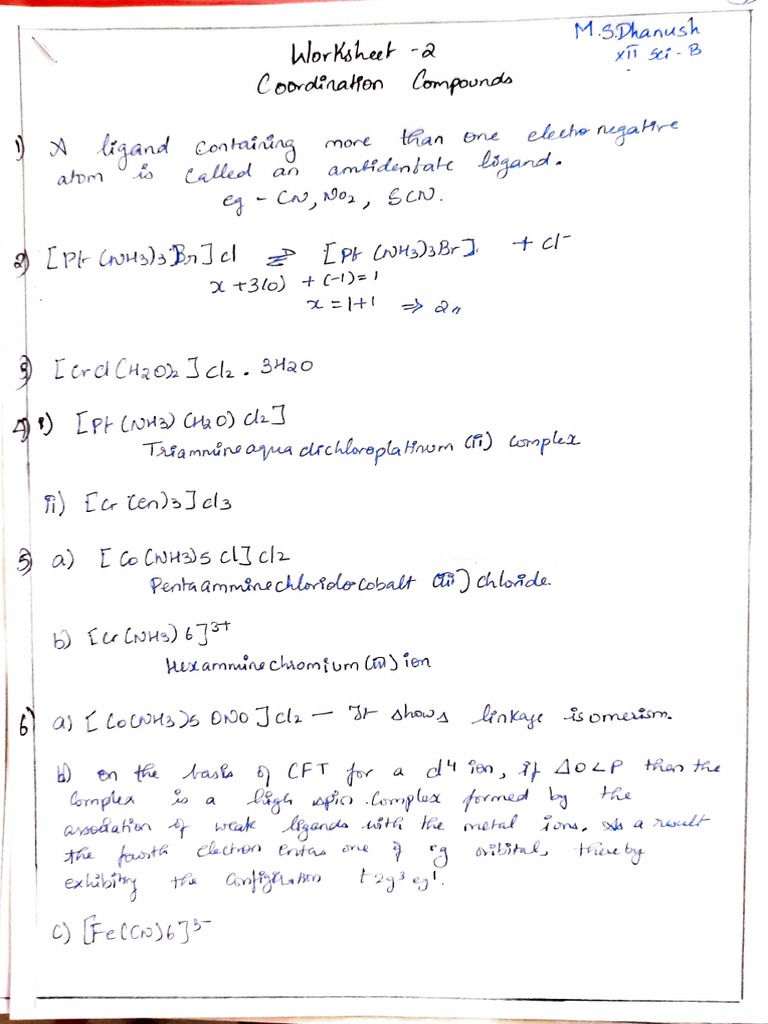 M.S.Dhanush
XII Sci - B
Worksheet - 2
Coordination Compounds
1) A ligand containing more than one electro negative
atom is called an ambidentate ligand.
eg - CN, NO2, SCN.
2) [Pt (NH3)3 Br] cl ⇌ [Pt (NH3)3Br] + cl-
x + 3(0) + (-1) = 1
x = 1+1 ⇒ 2"
3) [Cr cl (H2O)2] cl2 . 3H2O
4) i) [Pt (NH3) (H2O) cl2]
Triammineaqua dichloroplatinum (ii) complex
ii) [Cr (en)3] cl3
5) a) [Co (NH3)5 cl] cl2
Pentaamminechloridocobalt (iii) chloride.
b) [Cr (NH3) 6]3+
Hexamminechromium (iii) ion
6) a) [Co(NH3)5 ONO] cl2 - It shows linkage isomerism.
b) on the basis of CFT for a d4 ion, if ΔO<P than the
Complex is a high spin complex formed by the
association of weak ligands with the metal ions. As a result
the fourth electron enters one of eg orbital, thereby
exhibiting the configuration t2g3 eg1.
c) [Fe(CN)6]3-